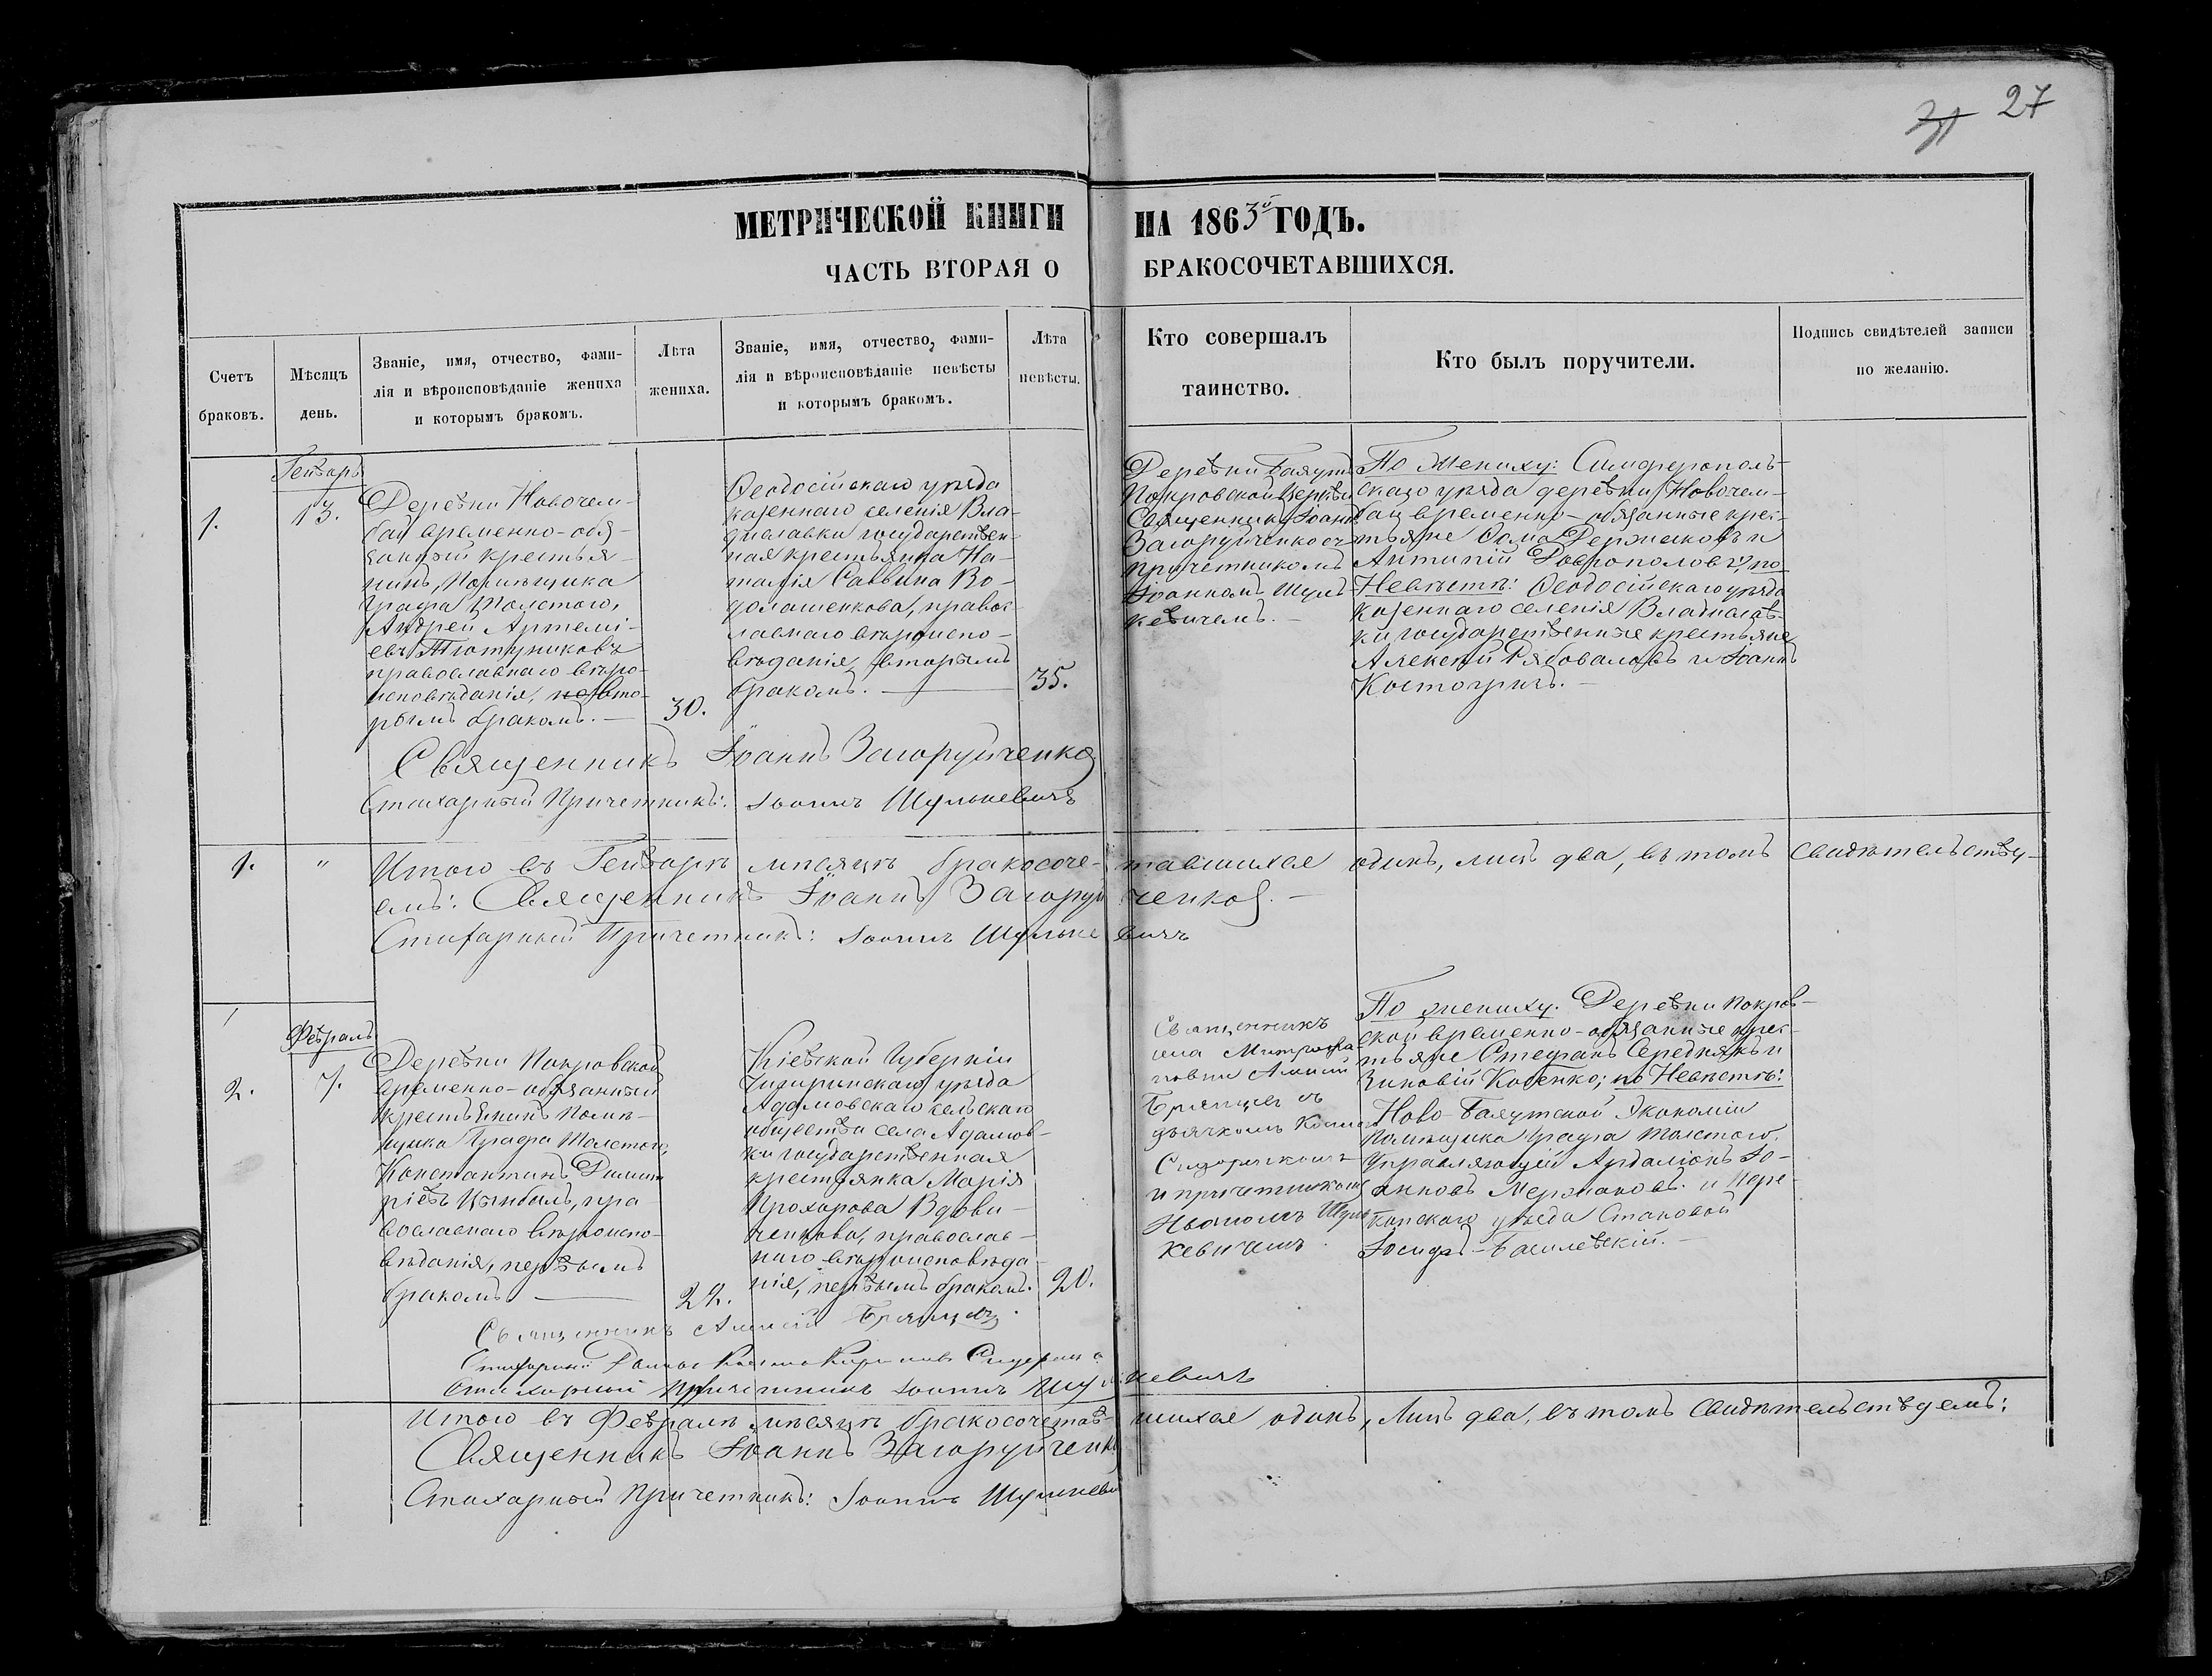 27
МЕТРИЧЕСКОЙ КНИГИ НА 1863й ГОДЪ.
ЧАСТЬ ВТОРАЯ О БРАКОСОЧЕТАВШИХСЯ.
Счетъ
браковъ.
Мѣсяцъ
день.
Званіе, имя, отчество, фами-
лія и вѣроисповѣданіе жениха
и которымъ бракомъ.
Лѣта
жениха.
Званіе, имя, отчество, фами-
лія и вѣроисповѣданіе невѣсты
и которымъ бракомъ.
Лѣта
невѣсты.
Кто совершалъ
таинство.
Кто былъ поручители.
Подпись свидѣтелей записи
по желанію.
1.
Генварь
13.
Деревни Новочем-
бай временно-обя-
занный крестья-
нинъ, Помѣщика
Графа Толстого,
Андрей Артемі-
евъ Тютюниковъ
православнаго вѣро-
исповѣданія, вто-
рымъ бракомъ.
30.
Ѳеодосійскаго уѣзда
казеннаго селенія Вла-
диславки государствен-
ная крестьянка На-
талія Саввина Во-
долашенкова, правос-
лавнаго вѣроиспо-
вѣданія, вторымъ
бракомъ.
35.
Деревни Баяутъ
Покровской Церкви
Священникъ Іоаннъ
Загоруйченко съ
причетникомъ
Іоанномъ Шуль-
кевичемъ.
По Жениху: Симферополь-
скаго уѣзда деревни Новочем-
бай временно-обязанные крес-
тьяне Ѳома Держаковъ и
Антипій Доброполовъ; по
Невѣстѣ: Ѳеодосійскаго уѣзда
казеннаго селенія Владислав-
ки государственные крестьяне
Алексѣй Рябоваловъ и Іоаннъ
Костогризъ.
Священникъ Іоаннъ Загоруйченко
Стихарный Причетникъ: Іоаннъ Шулькевичъ
1. " Итого въ Генварѣ мѣсяцѣ бракосоче-тавшихся одинъ, лицъ два, въ томъ свидѣтельству-
емъ: Священникъ Іоаннъ Загоруйченко.
Стихарный Причетникъ: Іоаннъ Шулькевичъ
2.
Февраль
7.
Деревни Покровской
временно-обязанный
крестьянинъ Помѣ-
щика Графа Толстого,
Константинъ Димит-
ріевъ Цымбалъ, пра-
вославнаго вѣроиспо-
вѣданія, первымъ
бракомъ.
22.
Кіевской Губерніи
Чигиринскаго уѣзда
Адамовскаго сельскаго
общества села Адамов-
ки государственная
крестьянка Марія
Прохорова Вдови-
ченкова, православ-
наго вѣроисповѣда-
нія, первымъ бракомъ.
20.
Священникъ
Алексій
Брянцев съ
дьячкомъ
и причетникомъ
Иваномъ Шуль-
кевичемъ.
По жениху. Деревни Покров-
ской временно-обязанные крес-
тьяне Стефанъ Середнякъ и
Зиновій Кобенко; по Невѣстѣ:
Ново-Баяутской Экономіи
Помѣщика Графа Толстого.
Управляющій Ардаліонъ Іо-
анновъ Мержановъ. и Пере-
копскаго уѣзда Становой
Базилевскій.
Священникъ Алексій Брянцевъ.
Стихарный
Стихарный Причетникъ Іоаннъ Шулькевичъ
Итого въ Февралѣ мѣсяцѣ бракосочетав-шихся одинъ, Лицъ два, въ томъ свидѣтельствуемъ:
Священникъ Іоаннъ Загоруйченко
Стихарный Причетникъ: Іоаннъ Шулькеви